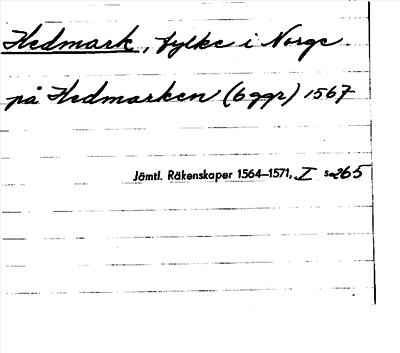 Hedmark, fylke i Norge
på Hedmarken (6 ggr) 1567
Jämtl. Räkenskaper 1564—1571, I s. 265